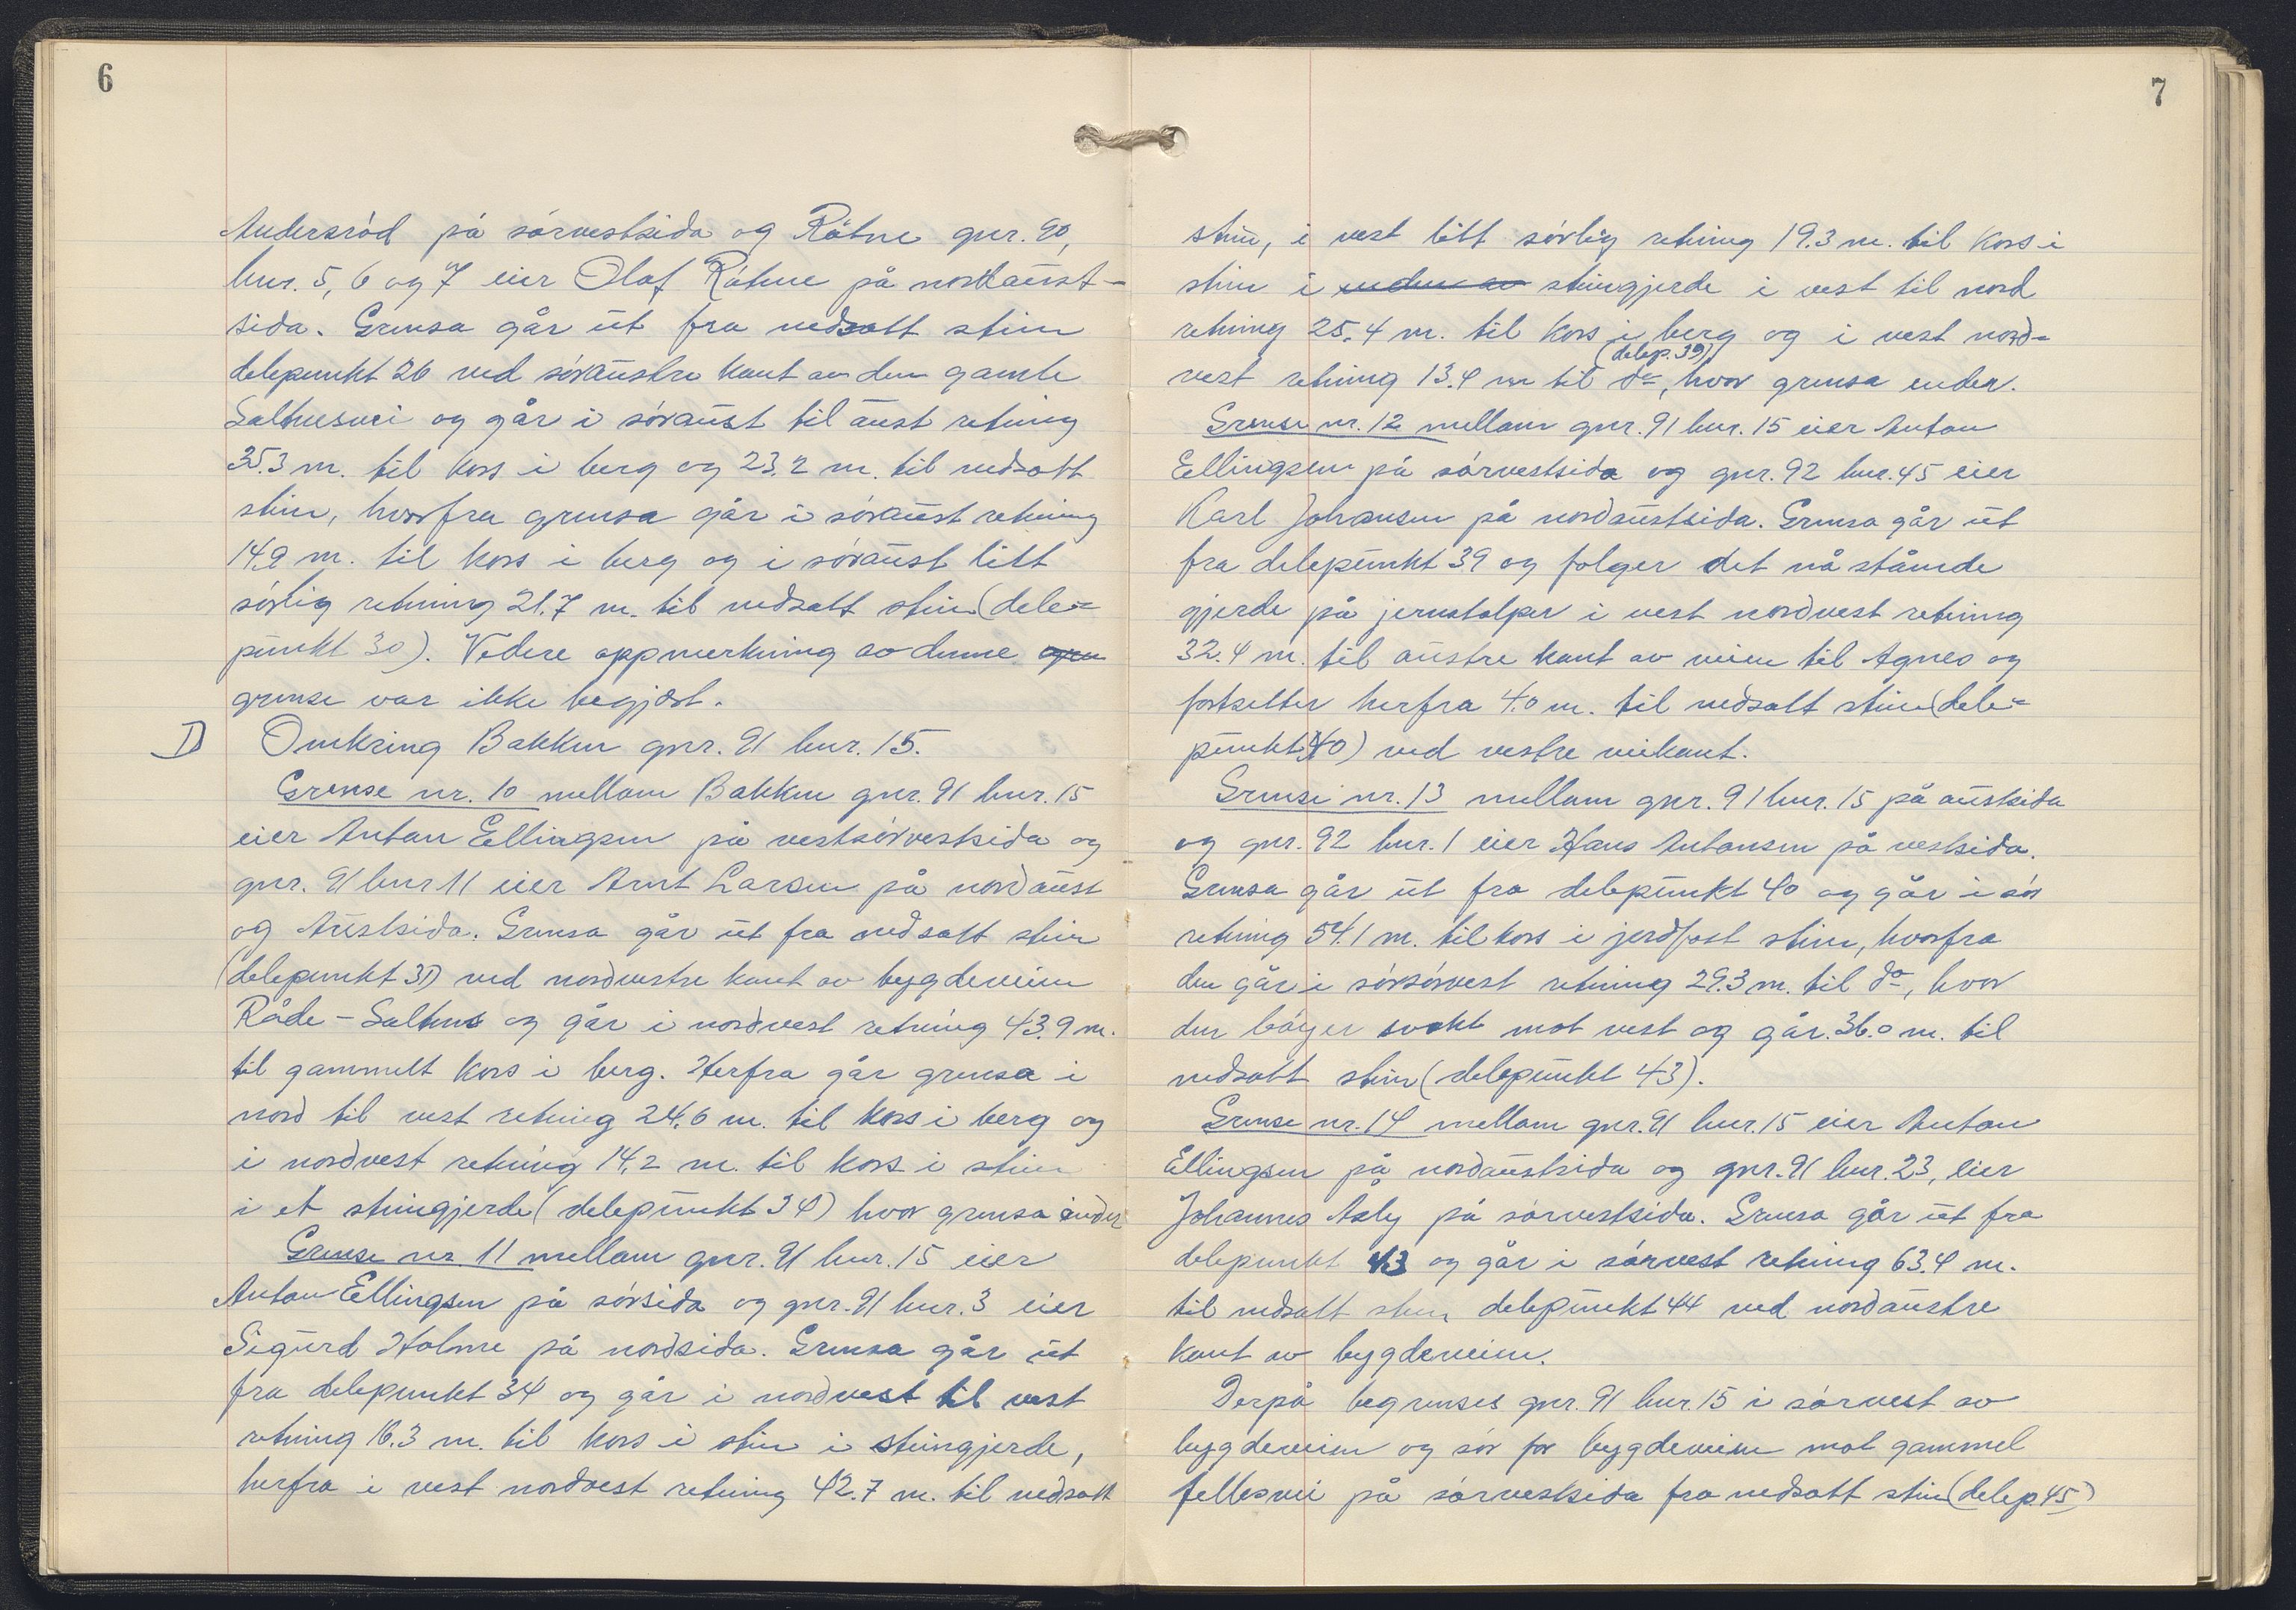 6
Andersröd på sörvestsida og Råtne gnr. 90,
bnr. 5, 6 og 7 eier Olaf Råtne på nordaust-
sida. Grensa går ut fra nedsatt stein
delepunkt 26 ved söraustre kant av den gamle
Saltnesvei og går i söraust til aust retning
35.3 m. til kors i berg og 23.2 m. til nedsatt
stein, hvorfra grensa går i söraust retning
14.9 m. til kors i berg og i söraust litt
sörlig retning 21.7 m. til nedsatt stein (dele-
punkt 30). Videre oppmerkning av denne
grense var ikke begjært.
D Omkring Bakken gnr. 91 bnr. 15.
Grense nr. 10 mellom Bakken gnr. 91 bnr. 15
eier Anton Ellingsen på vestsörvestsida og
gnr. 91 bnr 11 eier Arnt Larsen på nordaust
og Austsida. Grensa går ut fra nedsatt stein
(delepunkt 31) ved nordvestre kant av bygdeveien
Råde - Saltnes og går i nordvest retning 43.9 m.
til gammelt kors i berg. Herfra går grensa i
nord til vest retning 24.6 m. til kors i berg og
i nordvest retning 14.2 m. til kors i stein
i et steingjerde (delepunkt 34) hvor grensa ender
Grense nr. 11 mellom gnr. 91 bnr. 15 eier
Anton Ellingsen på sörsida og gnr. 91 bnr. 3 eier
Sigurd Holme på nordsida. Grensa går ut
fra delepunkt 34 og går i nordvest til vest
retning 16.3 m. til kors i stein i steingjerde,
herfra i vest nordvest retning 42.7 m. til nedsatt
7
stein, i vest litt sörlig retning 19.3 m. til kors i
stein i enden av steingjerde i vest til nord
retning 25.4 m. til kors i berg og i vest nord-
(delep. 39)
vest retning 13.4 m til do, hvor grensa ender.
Grense nr. 12 mellom gnr. 91 bnr. 15 eier Anton
Ellingsen på sörvestsida og gnr. 92 bnr. 45 eier
Karl Johansen på nordaustsida. Grensa går ut
fra delepunkt 39 og folger det nå stående
gjerde på jernstolper i vest nordvest retning
32.4 m. til austre kant av veien til Agnes og
fortsetter herfra 4.0 m. til nedsatt stein (dele-
punkt 40) ved vestre veikant.
Grense nr. 13 mellom gnr. 91 bnr. 15 på austsida
og gnr. 92 bnr. 1 eier Hans Antonsen på vestsida.
Grensa går ut fra delepunkt 40 og går i sör
retning 54.1 m. til kors i jordfast stein, hvorfra
den går i sörsörvest retning 29.3 m. til do, hvor
den böyer svakt mot vest og går 36.0 m. til
nedsatt stein (delepunkt 43).
Grense nr. 14 mellom gnr. 91 bnr. 15 eier Anton
Ellingsen på nordaustsida og gnr. 91 bnr. 23, eier
Johannes Asly på sörvestsida. Grensa går ut fra
delepunkt 43 og går i sörvest retning 63.4 m.
til nedsatt stein delepunkt 44 ved nordaustre
kant av bygdeveien.
Derpå begrenses gnr. 91 bnr. 15 i sörvest av
bygdeveien og sör for bygdeveien mot gammel
fellesvei på sörvestsida fra nedsatt stein (delep. 45)